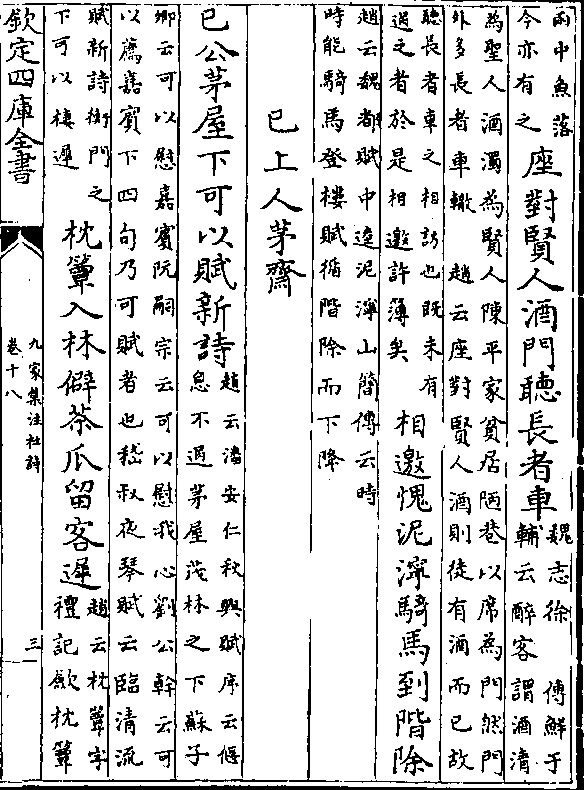 雨中魚落
今亦有之
座對賢人酒門聽長者車
魏志徐　傳鮮于
輔云醉客謂酒清
為聖人酒濁為賢人陳平家貧居陋巷以席為門然門
外多長者車轍　趙云座對賢人酒則徒有酒而已故
聽長者車之相訪也既未有
過之者於是相邀許簿矣
相邀愧泥濘騎馬到階除
趙云魏都賦中逵泥濘山簡傳云時
時能騎馬登樓賦循階除而下降
巳上人茅齋
巳公茅屋下可以賦新詩
趙云潘安仁秋興賦序云偃
息不過茅屋茂林之下蘇子
卿云可以慰嘉賓阮嗣宗云可以慰我心劉公幹云可
以薦嘉賓下四句乃可賦者也嵇叔夜琴賦云臨清流
賦新詩衡門之
下可以棲遲
枕簟入林僻茶瓜留客遲
趙云枕簟字
禮記歛枕簟
欽定四庫全書
九家集注杜詩
卷十八
三